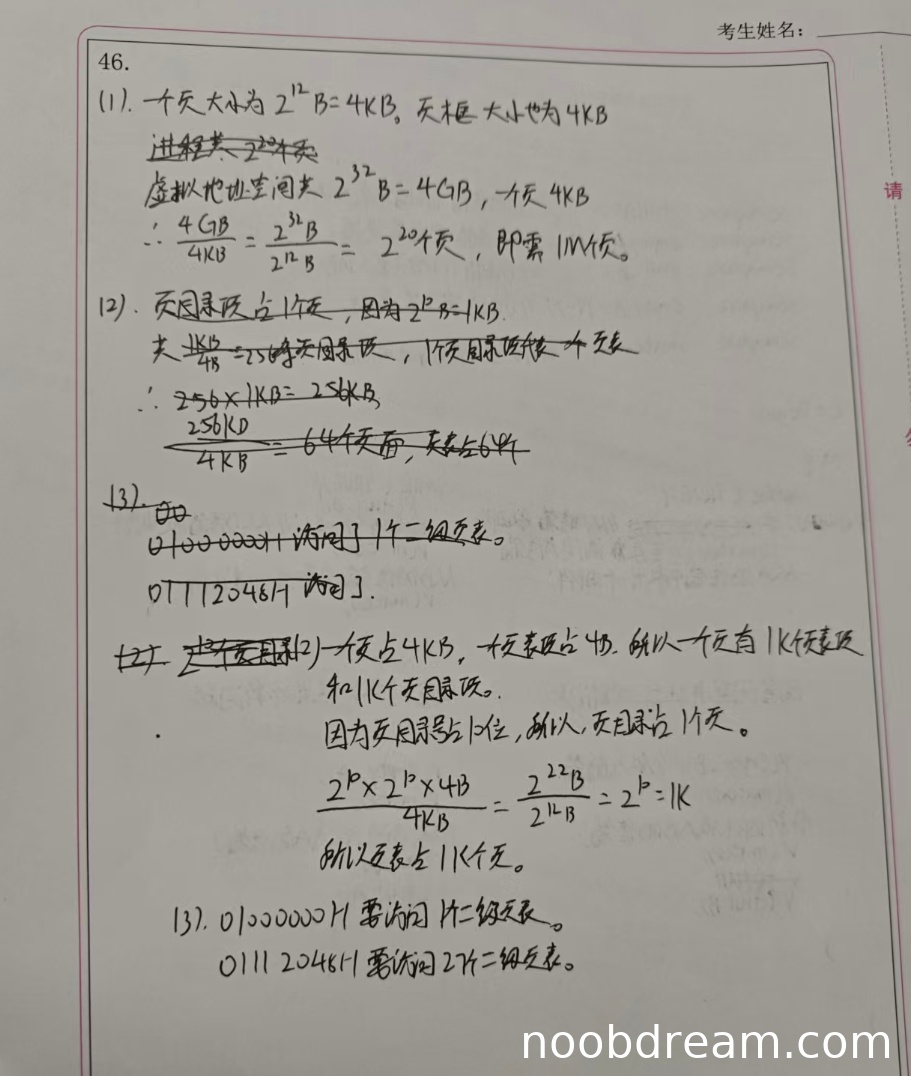 考生姓名：
46.
(1). 一个页大小为 2^12 B = 4KB。页框大小也为 4KB
进程共 2^20 个页
虚拟地址空间共 2^32 B = 4GB，一个页 4KB
∴ 4GB/4KB = 2^32 B/2^12 B = 2^20 个页，即需 1M个页。
(2). 页目录项占1个页，因为 2^10 B = 1KB.
共 1KB/4B = 256个页目录项，1个页目录项代表一个页表
∴ 256×1KB = 256KB,
256KB/4KB = 64个页面，页表占64个
(3).
01000000H 访问了1个二级页表。
01112048H 访问了.
(2) (2) 一个页占4KB，一个页表项占4B. 所以一个页有1K个页表项
和1K个页目录项。
因为页目录号占10位，所以，页目录占1个页。
2^10×2^10×4B/4KB = 2^22 B/2^12 B = 2^10 = 1K
所以页表占1K个页。
(3). 01000000H 要访问1个二级页表。
01112048H 要访问2个二级页表。
请
noobdream.com